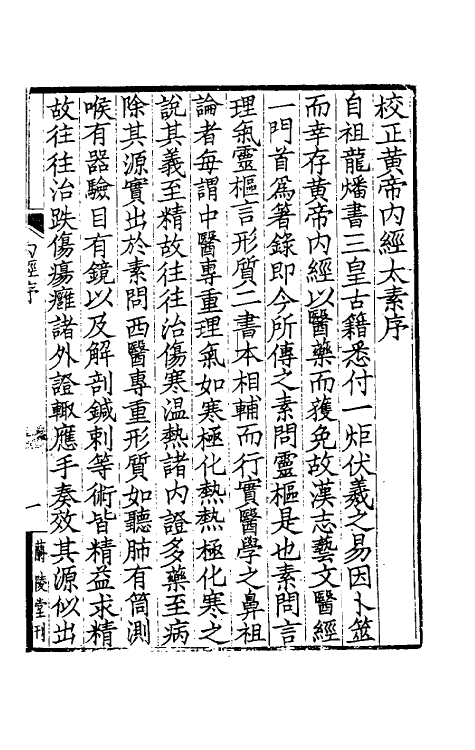 校正黃帝內經太素序
自祖龍燔書三皇古籍悉付一炬伏羲之易因卜筮
而幸存黃帝內經以醫藥而獲免故漢志藝文醫經
一門首爲著錄即今所傳之素問靈樞是也素問言
理氣靈樞言形質二書本相輔而行實醫學之鼻祖
論者每謂中醫專重理氣如寒極化熱熱極化寒之
說其義至精故往往治傷寒温熱諸內證多藥至病
除其源實出於素問西醫專重形質如聽肺有筒測
喉有器驗目有鏡以及解剖鍼刺等術皆精益求精
故往往治跌傷瘍癰諸外證輙應手奏效其源似出
內經序
一
蘭陵堂刊